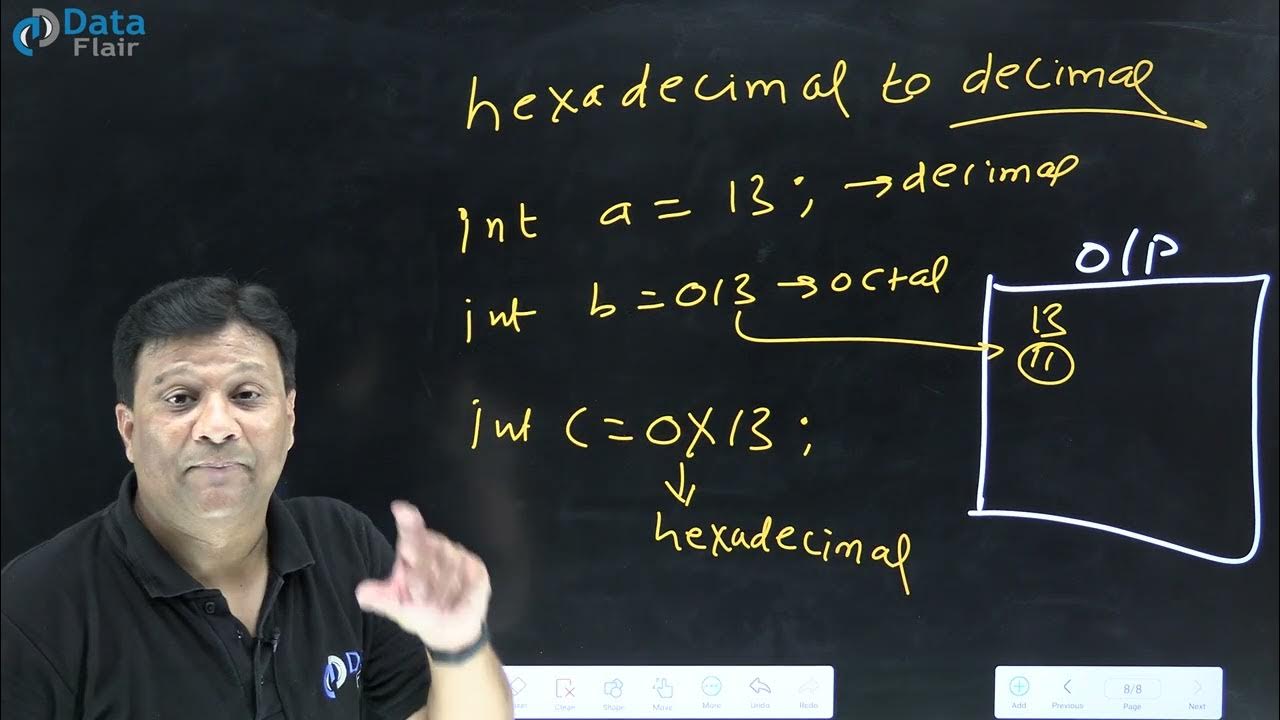 Data
Flair
hexadecimal to decimal
int a = 13; → decimal
int b = 013 → octal
O/P
13
11
int c = 0X13;
↓
hexadecimal
Clean
Shape
Move
More
Undo
Redo
Add
Previous
8/8
Page
Next